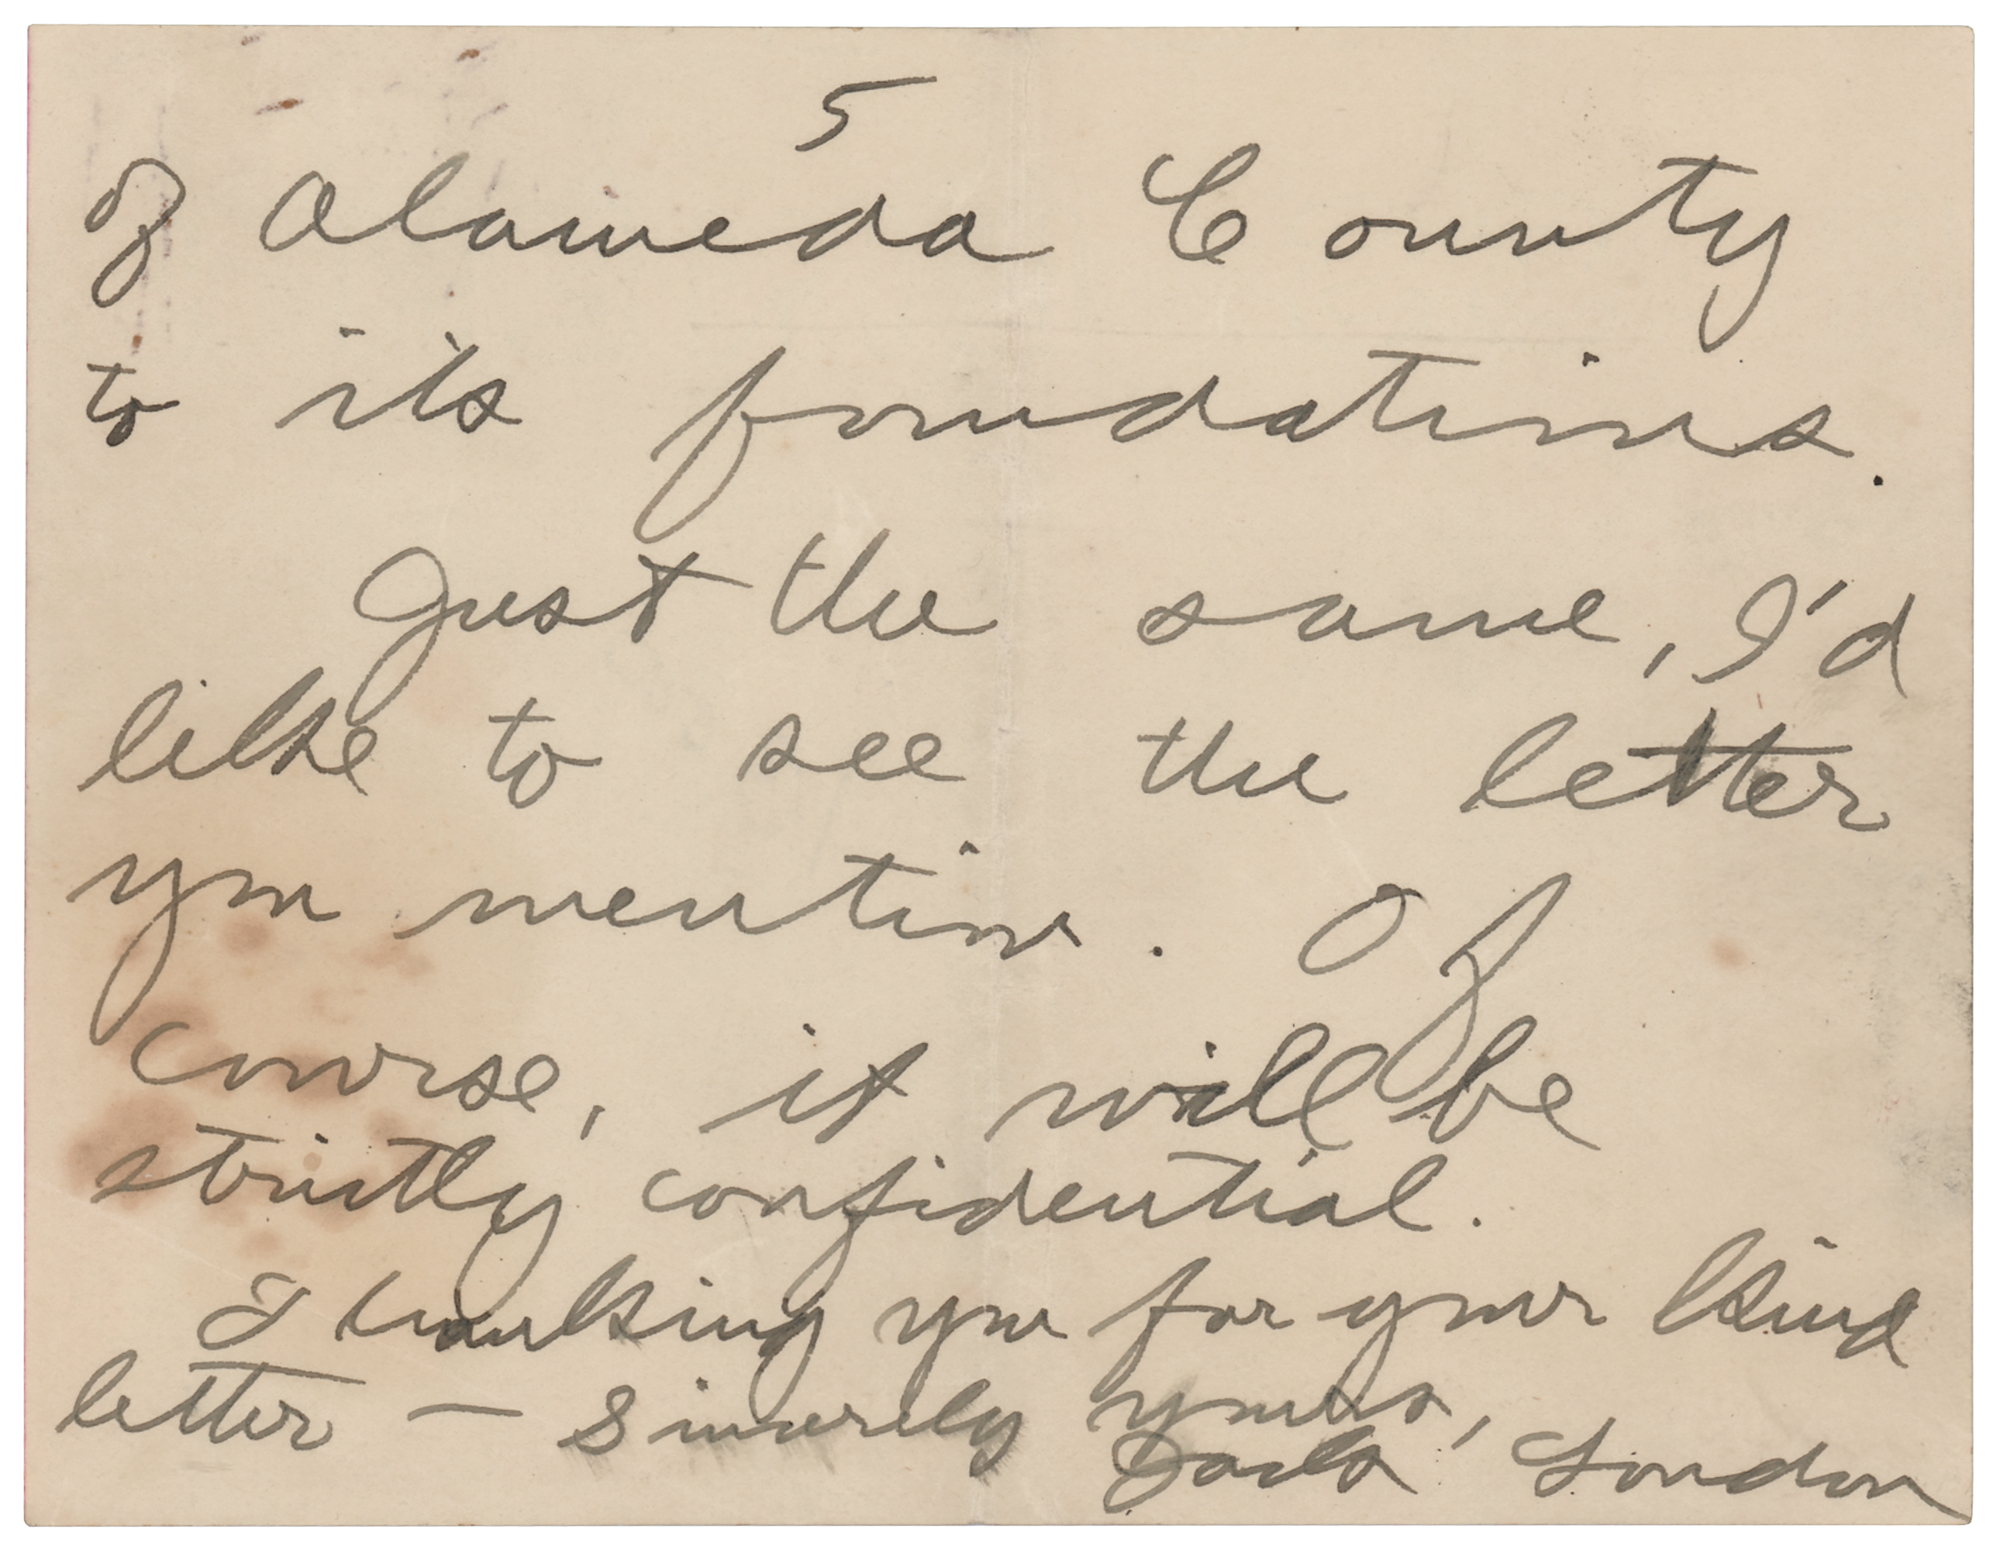 5
of Alameda County
to its foundations.
Just the same, I'd
like to see the letter
you mention. Of
course, it will be
strictly confidential.
Thanking you for your kind
letter — Sincerely yours,
Jack London